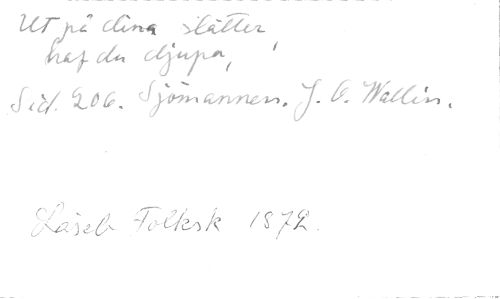 Ut på dina slätter,
haf du djupa,
Sid. 206. Sjömannen. J. O. Wallin.
Läseb Folksk 1872.